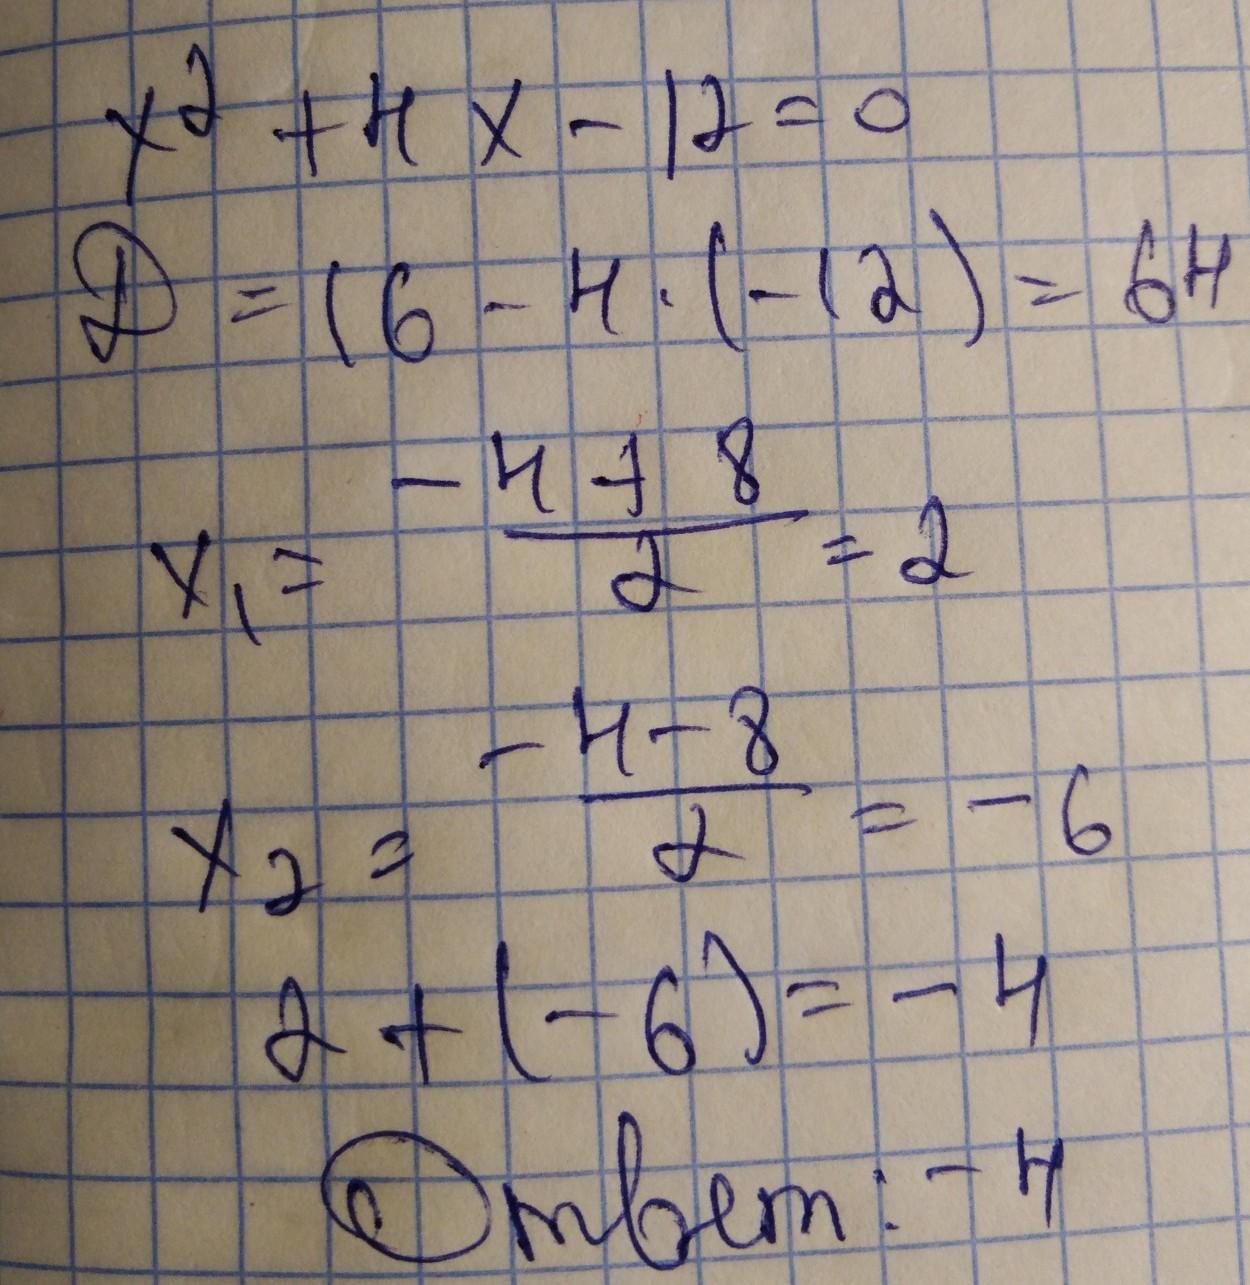 x² + 4x - 12 = 0
D = 16 - 4 · (-12) = 64
x₁ = (-4 + 8)/2 = 2
x₂ = (-4 - 8)/2 = -6
2 + (-6) = -4
Ответ: -4